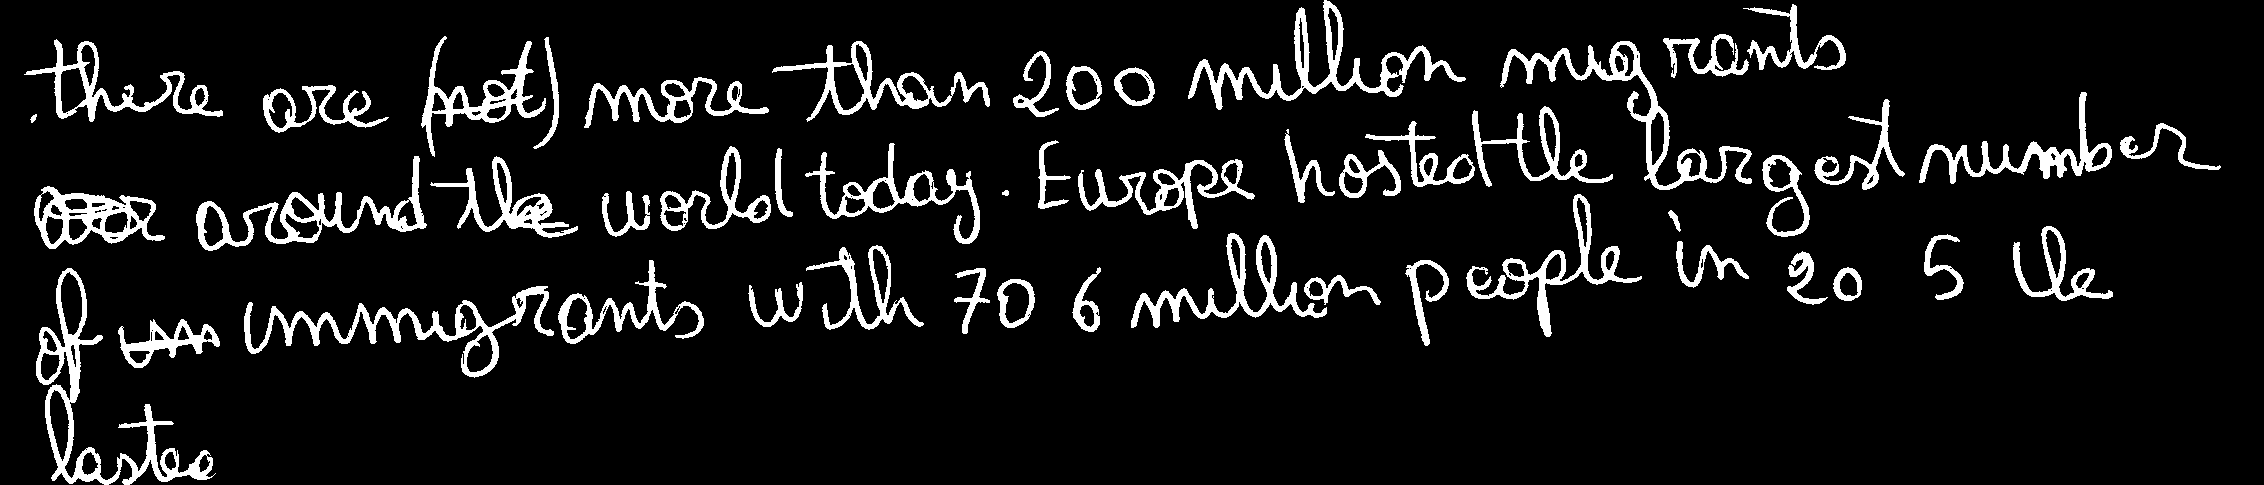 .there are (not) more than 200 million migrants
around the world today. Europe hosted the largest number
of immigrants with 70 6 million people in 20 5 the
lastee